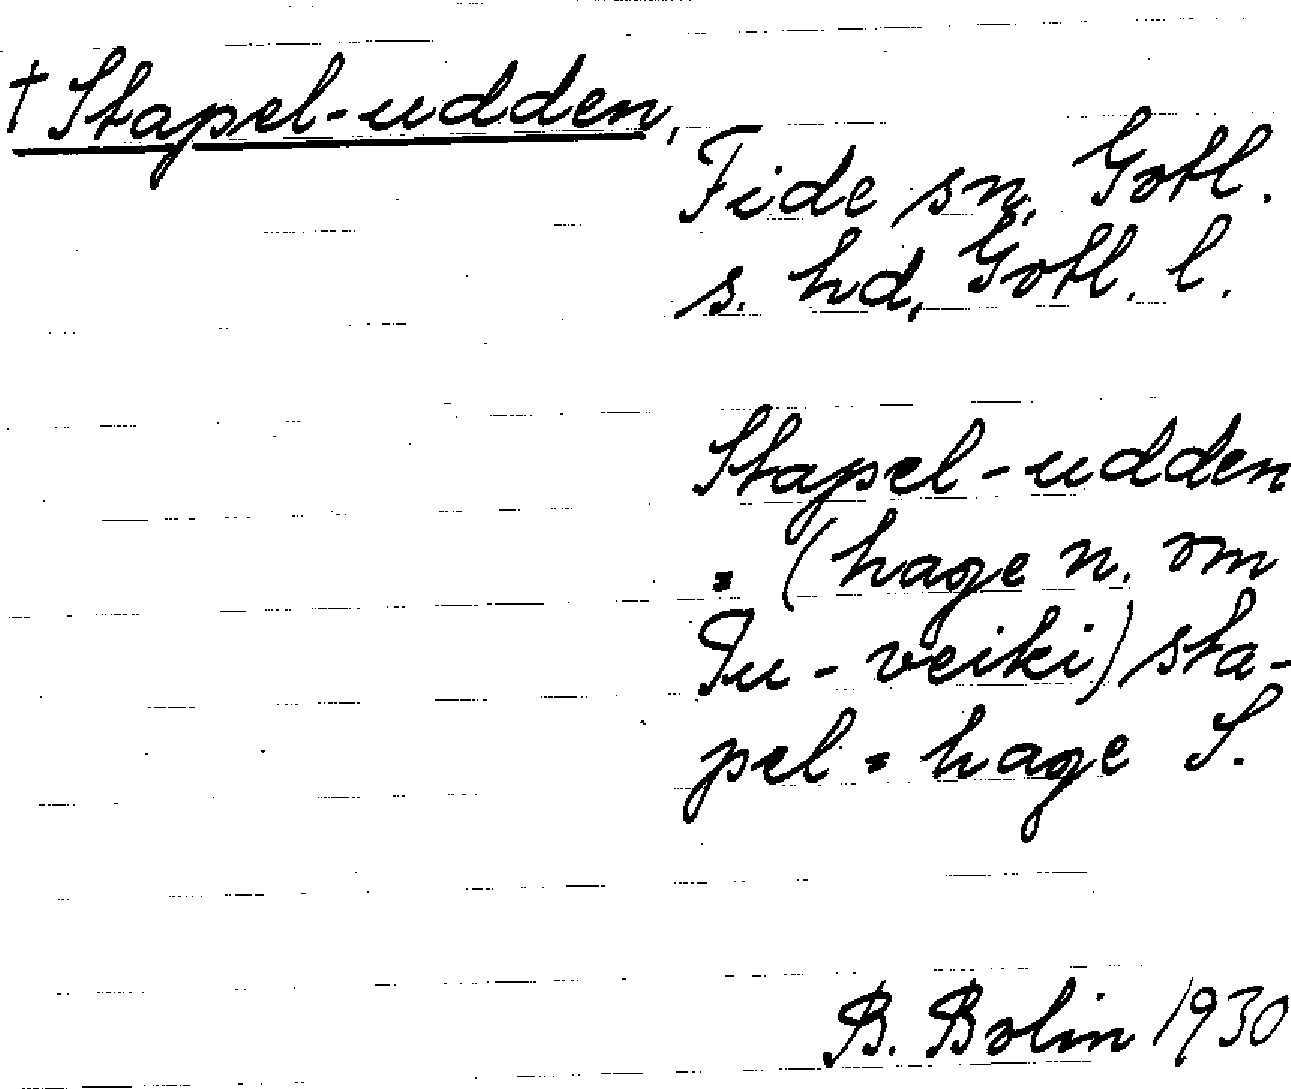 † Stapel-udden,
Fide sn, Gotl.
s. hd, Gotl. l.
Stapel-udden
= (hage n. om
Tu-veiki) sta-
pel = hage S.
B. Bolin 1930